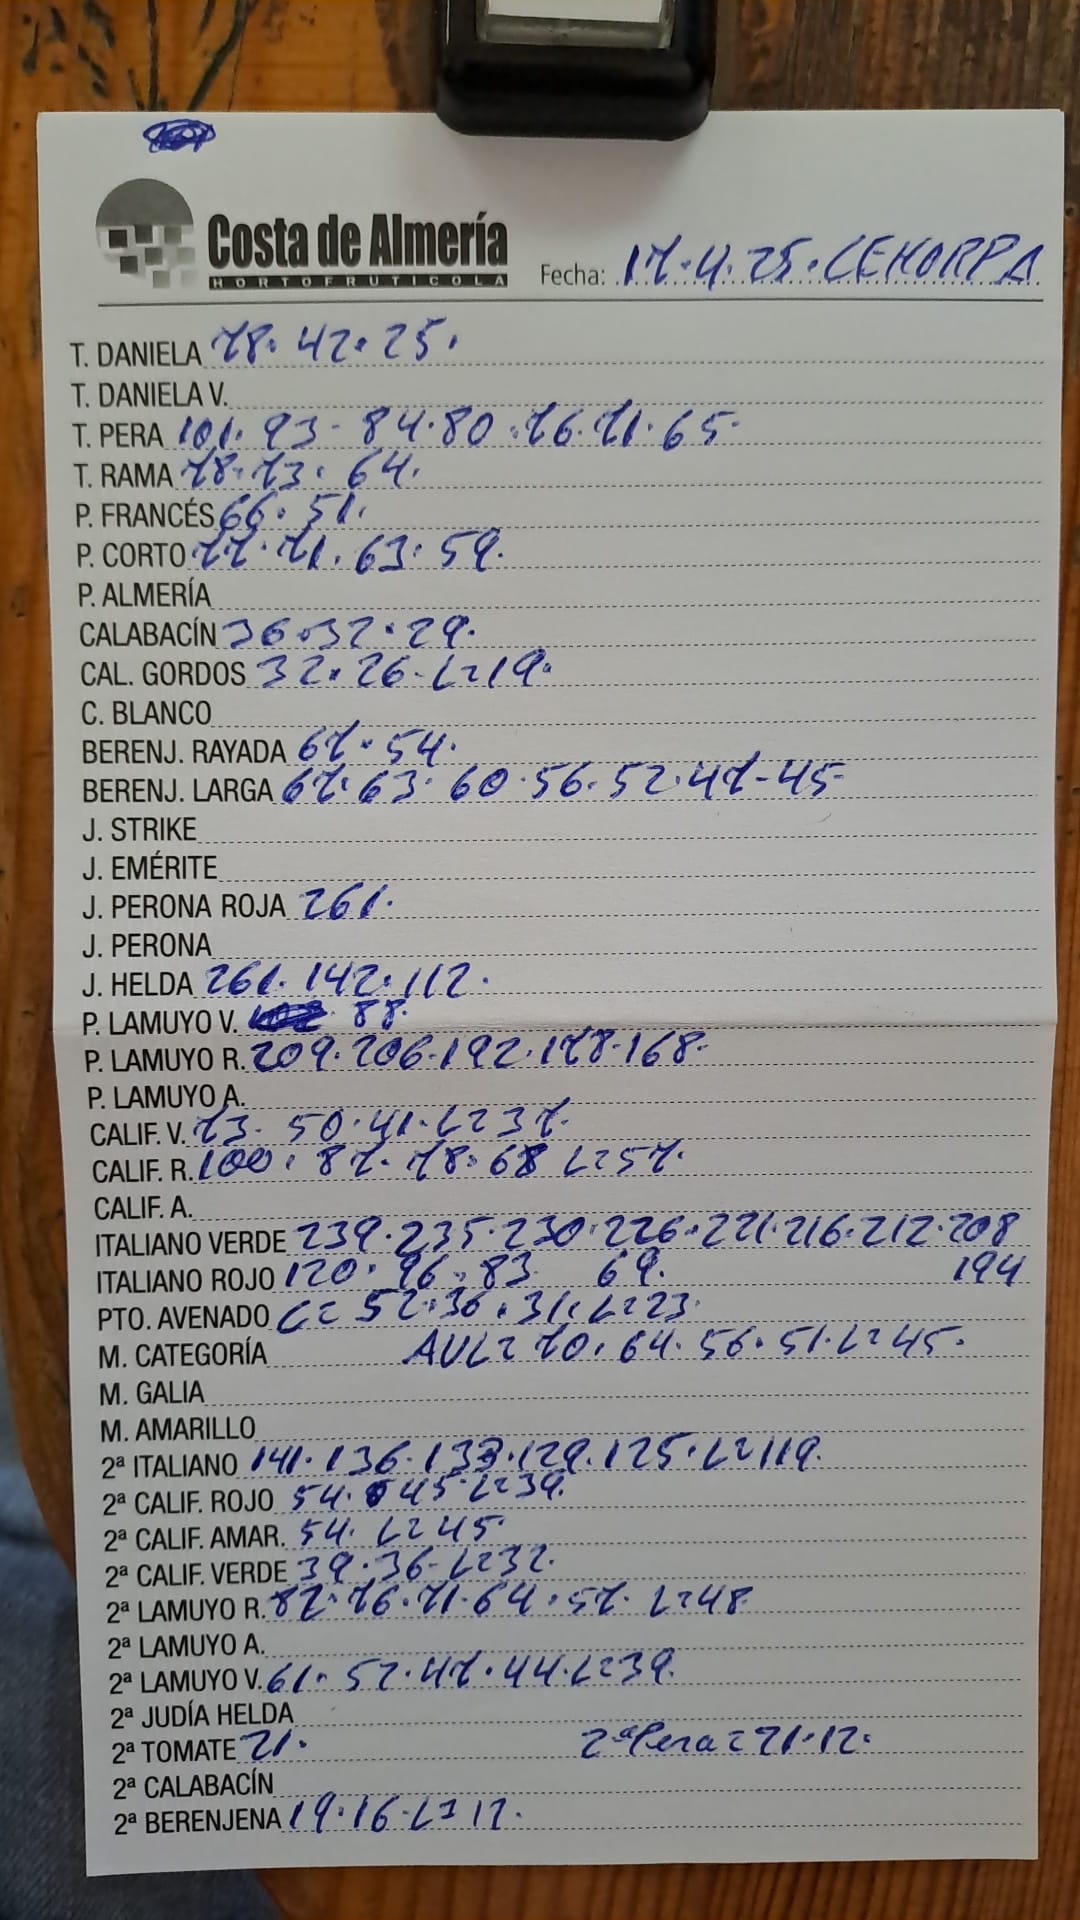 Costa de Almería
HORTOFRUTICOLA
Fecha: 17.4.25. CEHORPA
T. DANIELA 78. 42. 25.
T. DANIELA V.
T. PERA 101. 93 - 84. 80. 76. 71. 65.
T. RAMA 78. 73. 64.
P. FRANCÉS 66. 51.
P. CORTO 77. 71. 63. 59.
P. ALMERÍA
CALABACÍN 36. 32. 29.
CAL. GORDOS 32. 26. L=19.
C. BLANCO
BERENJ. RAYADA 67. 54.
BERENJ. LARGA 67. 63. 60. 56. 52. 47-45-
J. STRIKE
J. EMÉRITE
J. PERONA ROJA 261.
J. PERONA
J. HELDA 261. 142. 112.
P. LAMUYO V. 88.
P. LAMUYO R. 209. 206. 192. 178. 168.
P. LAMUYO A.
CALIF. V. 73. 50. 41. L=37.
CALIF. R. 100. 87. 78. 68 L=57.
CALIF. A.
ITALIANO VERDE 239. 235. 230. 226. 221. 216. 212. 208
ITALIANO ROJO 120. 96. 83 69. 194
PTO. AVENADO C= 52. 36. 31. L=23.
M. CATEGORÍA AVL= 70. 64. 56. 51. L=45.
M. GALIA
M. AMARILLO
2ª ITALIANO 141. 136. 133. 129. 125. L=119.
2ª CALIF. ROJO 54. 45 L=39.
2ª CALIF. AMAR. 54. L=45.
2ª CALIF. VERDE 39. 36- L=32.
2ª LAMUYO R. 82. 76. 71. 64. 57. L=48
2ª LAMUYO A.
2ª LAMUYO V. 61. 52. 47. 44. L=39.
2ª JUDÍA HELDA
2ª TOMATE 21. 2ª Pera= 21. 12.
2ª CALABACÍN
2ª BERENJENA 19. 16. L= 12.